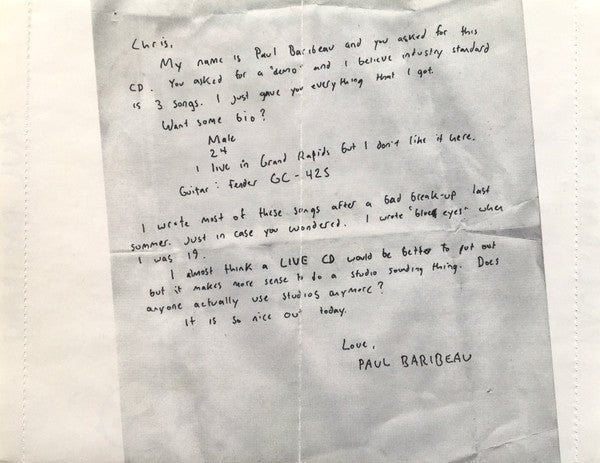 Chris,
My name is Paul Baribeau and you asked for this
CD. You asked for a "demo" and I believe industry standard
is 3 songs. I just gave you everything that I got.
Want some bio?
Male
24
I live in Grand Rapids but I don't like it here.
Guitar: Fender GC-42S
I wrote most of these songs after a bad break-up last
summer. Just in case you wondered. I wrote "blue eyes" when
I was 19.
I almost think a LIVE CD would be better to put out
but it makes more sense to do a studio sounding thing. Does
anyone actually use studios anymore?
It is so nice out today.
Love,
PAUL BARIBEAU